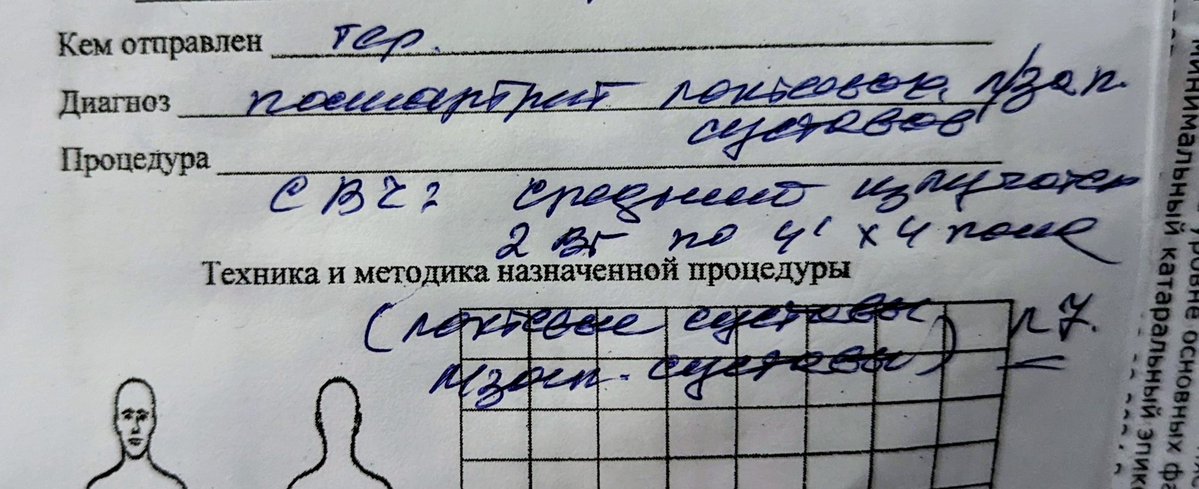 Кем отправлен тер.
Диагноз полиартрит локтевых, л/зап.
суставов
Процедура
СВЧ: средний излучатель
2 Вт по 4' x 4 поля
Техника и методика назначенной процедуры
(локтевые суставы, N7.
л/зап. суставы)
минимальный катаральный эпик
уровне основных фа